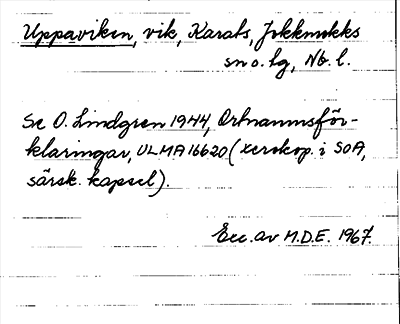 Uppaviken, vik, Karats, Jokkmokks
sn o. lg, Nb. l.
Se O. Lindgren 1944, Ortnamnsför-
klaringar, ULMA 16620 (xerokop. i SOA,
särsk. kapsel).
Exc. av M.D.E. 1967.